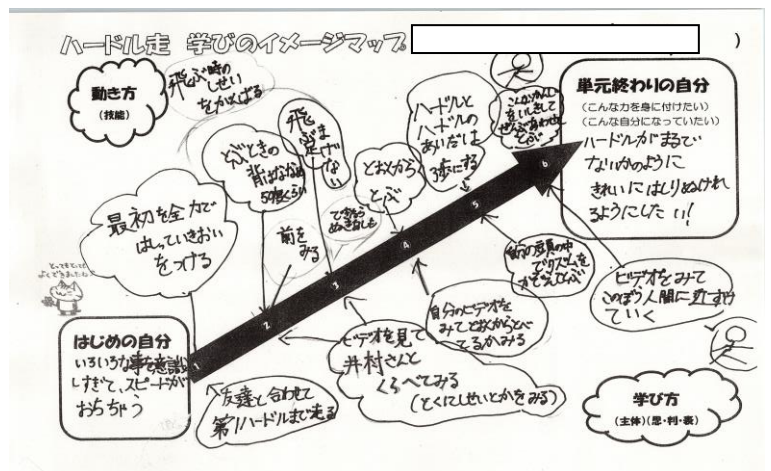 ハードル走 学びのイメージマップ
)
動き方
(技能)
飛ぶ時の
しせい
をがんばる
とぶときの
背はななめ
50度くらい
飛ぶ
まげない
とおくから
とぶ
ハードルと
ハードルの
あいだは
3歩にする
ぜんぶあわせて
とぶ
単元終わりの自分
(こんな力を身に付けたい)
(こんな自分になっていたい)
ハードルがまるで
ないかのように
きれいにはしりぬけれ
るようにしたい!
最初を全力で
はしっていきおい
をつける
前を
みる
できたら
ぬき足も
1
2
3
4
5
6
はじめの自分
いろいろな事を意識
しすぎて、スピードが
おちちゃう
友達と合わせて
第1ハードルまで走る
ビデオを見て
井村さんと
くらべてみる
(とくにしせいとかをみる)
自分のビデオを
みてとおくからとべ
てるかみる
自分の頭の中
でリズムを
かぞえてとぶ
ビデオをみて
このぼう人間に近ずけ
ていく
学び方
(主体)(思・判・表)